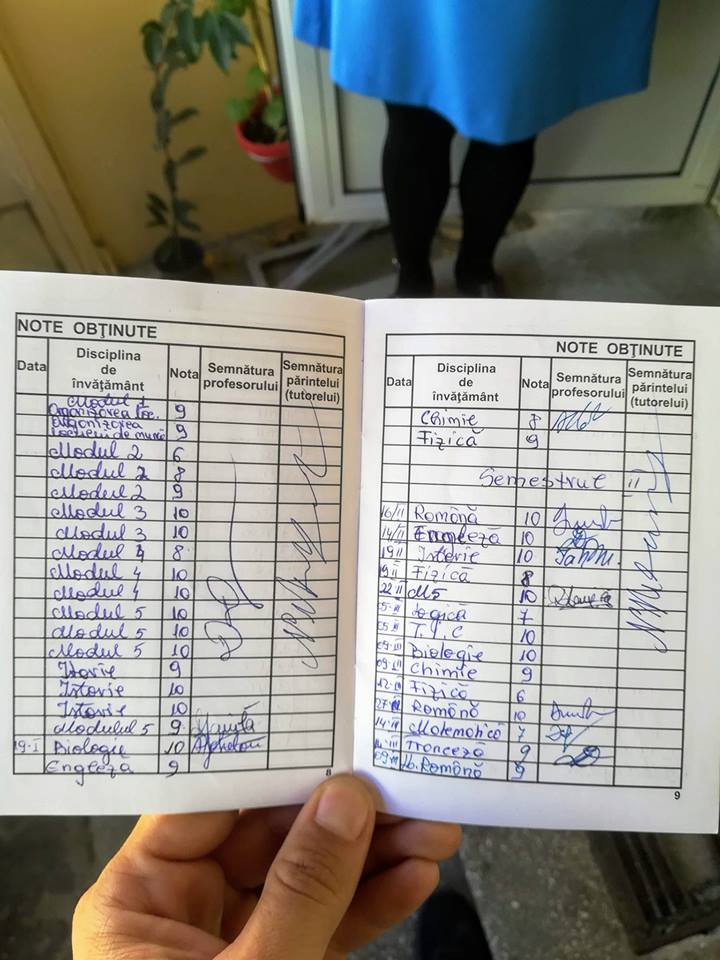 NOTE OBŢINUTE
Data Disciplina de învăţământ Nota Semnătura profesorului Semnătura părintelui (tutorelui)
Modul 1
Organizarea loc. 9
Organizarea
locului de muncă 9
Modul 2 6
Modul 2 8
Modul 2 9
Modul 3 10
Modul 3 10
Modul 4 8
Modul 4 10
Modul 4 10
Modul 5 10
Modul 5 10
Modul 5 10
Istorie 9
Istorie 10
Istorie 10
Modulul 5 9
19-I Biologie 10
Engleză 9
8
NOTE OBŢINUTE
Data Disciplina de învăţământ Nota Semnătura profesorului Semnătura părintelui (tutorelui)
Chimie 8
Fizică 9
Semestrul II
16/II Română 10
14/II Engleză 10
19 II Istorie 10
19 II Fizică 8
22 II M5 10
05-III Logică 7
05 III T.I.C 10
09-III Biologie 10
09-III Chimie 9
12-III Fizică 6
27-III Română 10
14-III Matematică 7
Franceză 9
09 Lb. Română 9
9